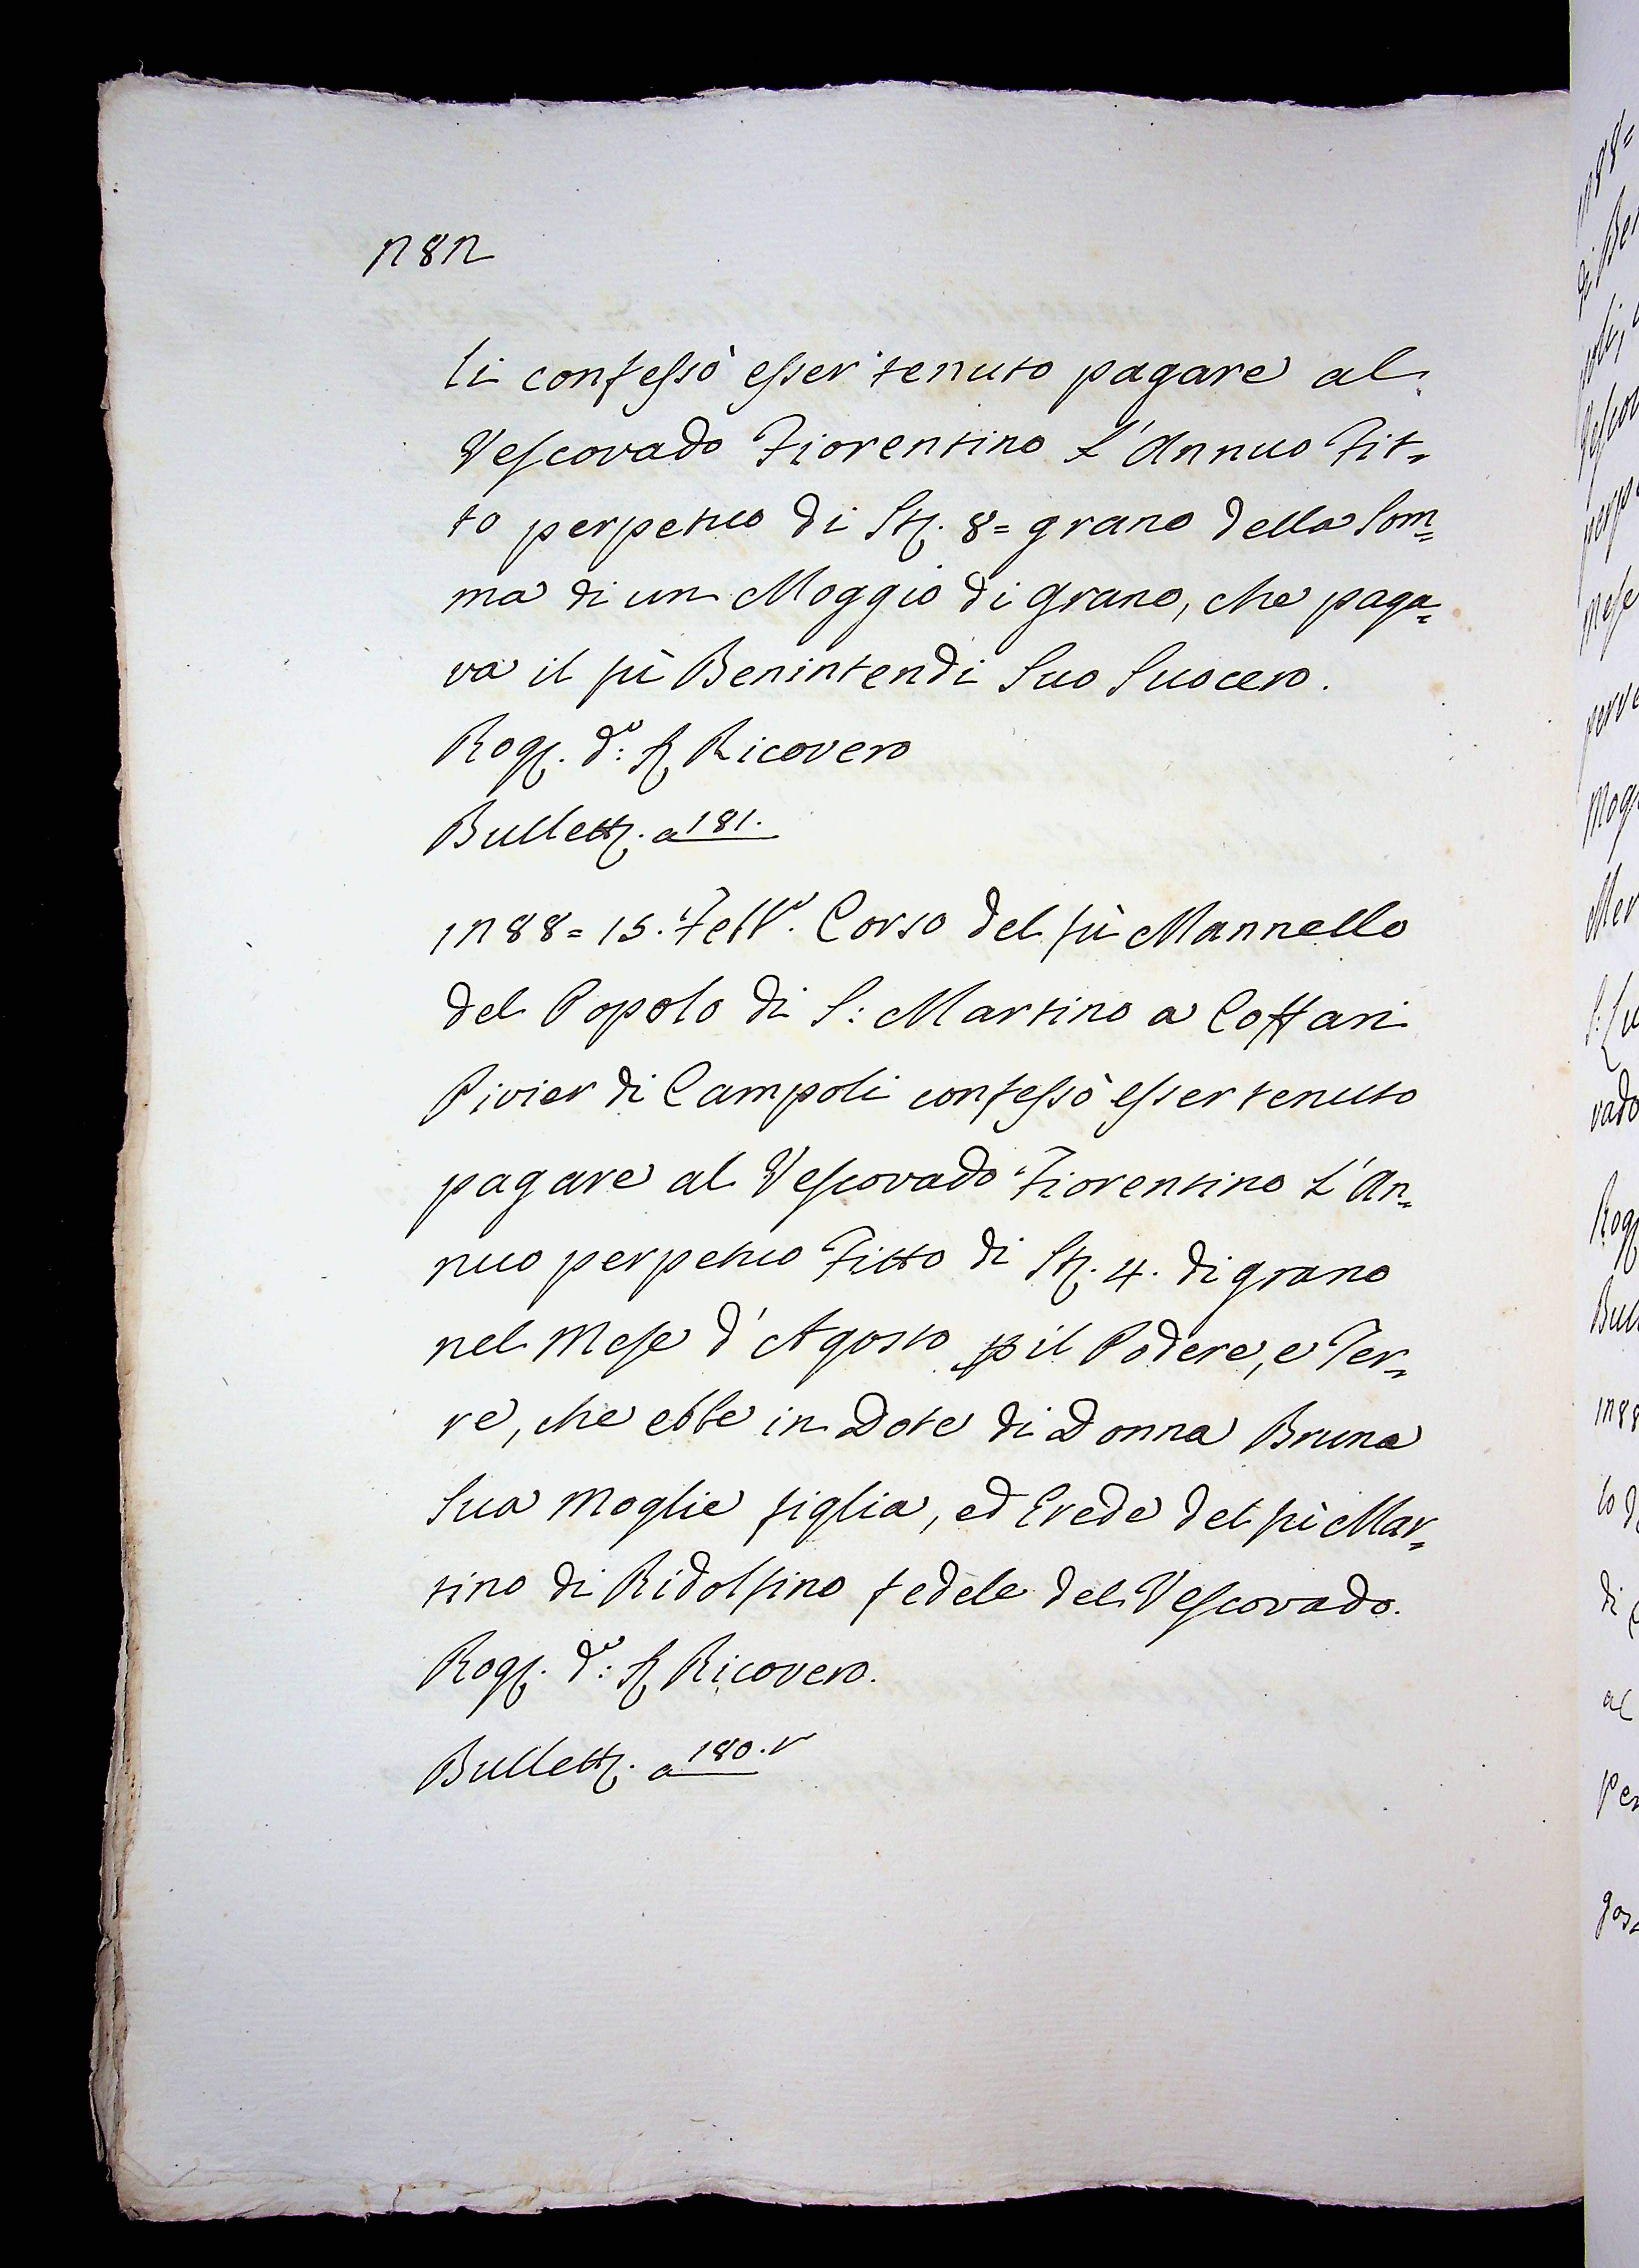 282
li confessò esser tenuto pagare al
Vescovado Fiorentino L'Annuo Fit=
to perpetuo di St. 8= grano della Som=
ma di un Moggio di grano, che paga=
va il fù Benintendi Suo Suocero.
Rog. do: Ricovero
Bullett. a 181.
1288= 15. Febb.o Corso del fù Mannello
del Popolo di S: Martino a Coffari
Pivier di Campoli confessò esser tenuto
pagare al Vescovado Fiorentino L'An=
nuo perpetuo Fitto di St. 4. di grano
nel Mese d'Agosto p il Podere, e Ter=
re, che ebbe in Dote di Donna Bruna
Sua Moglie figlia, ed Erede del fù Mar=
tino di Ridolfino fedele del Vescovado.
Rog. do: Ricovero.
Bullett. a 180.v